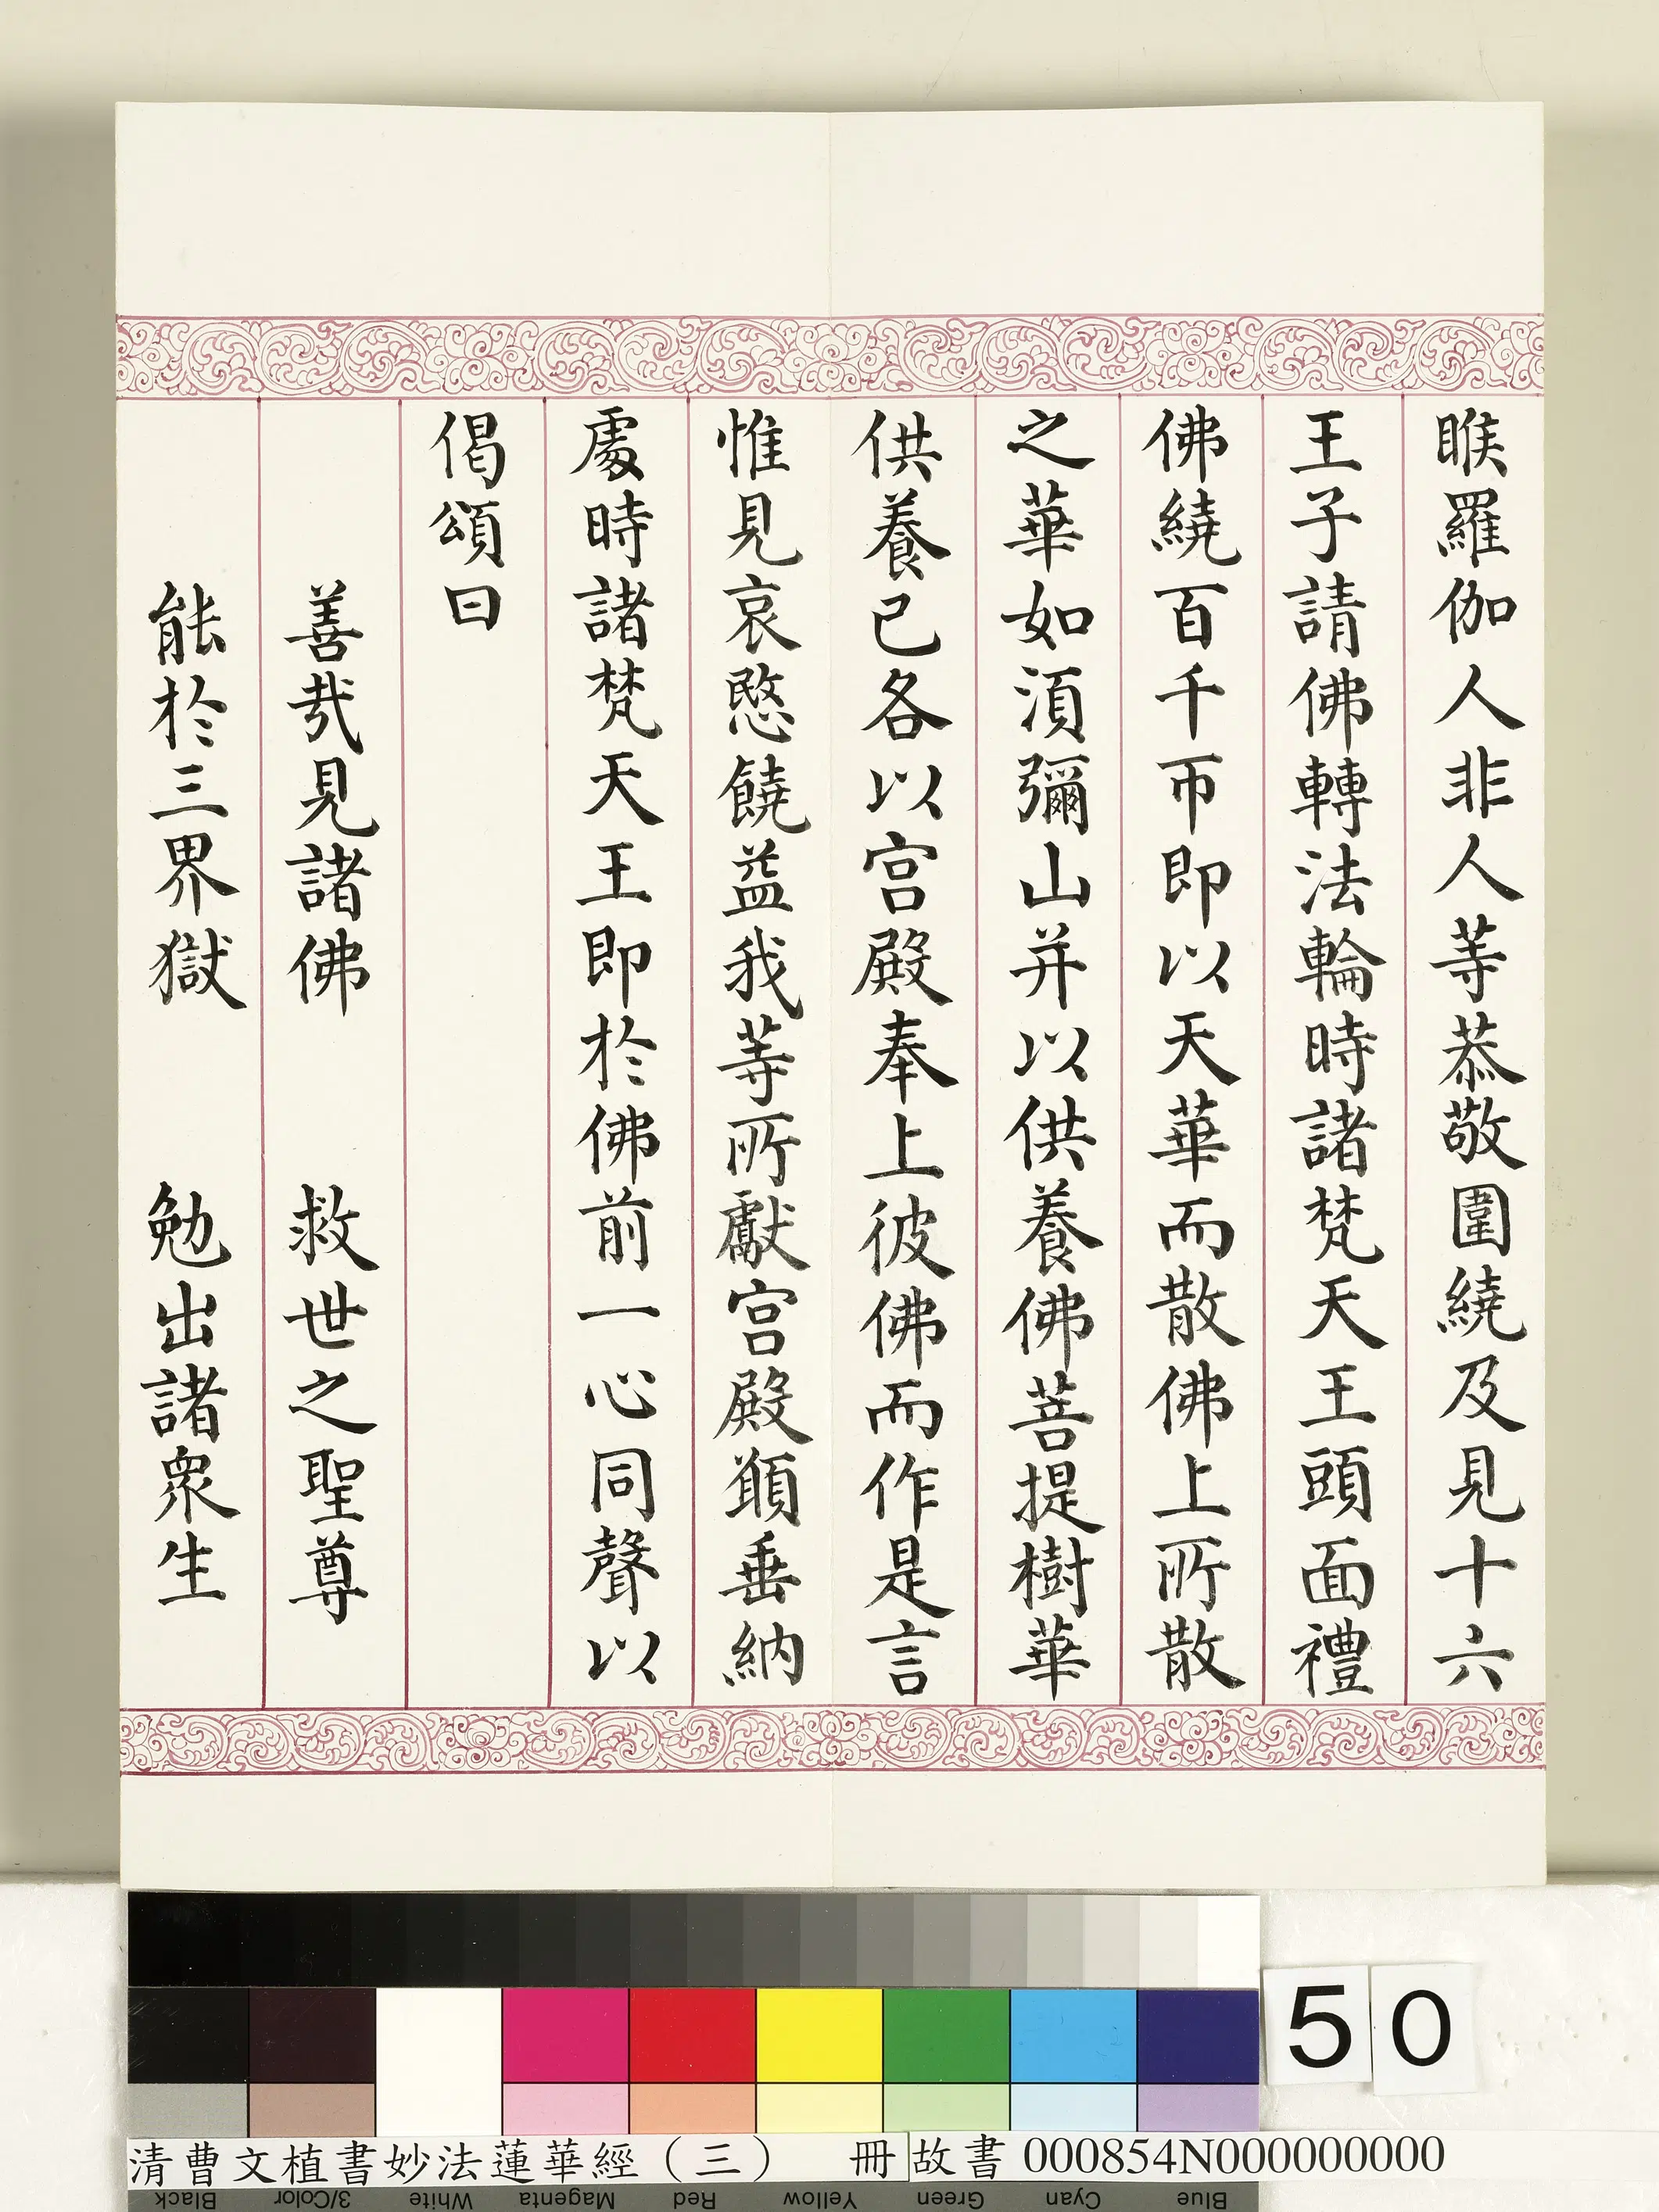 睺羅伽人非人等恭敬圍繞及見十六
王子請佛轉法輪時諸梵天王頭面禮
佛繞百千帀即以天華而散佛上所散
之華如須彌山并以供養佛菩提樹華
供養已各以宮殿奉上彼佛而作是言
惟見哀愍饒益我等所獻宮殿願垂納
處時諸梵天王即於佛前一心同聲以
偈頌曰
善哉見諸佛　救世之聖尊
能於三界獄　勉出諸眾生
50
清曹文植書妙法蓮華經（三）　冊　故書 000854N000000000
Black 3/Color White Magenta Red Yellow Green Cyan Blue